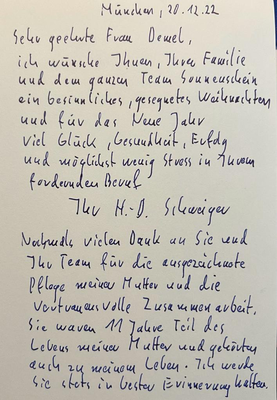 München, 20.12.22
Sehr geehrte Frau Demel,
ich wünsche Ihnen, Ihrer Familie
und dem ganzen Team Sonnenschein
ein besinnliches, gesegnetes Weihnachten
und für das Neue Jahr
viel Glück, Gesundheit, Erfolg
und möglichst wenig Stress in Ihrem
fordernden Beruf
Ihr H.-D. Schweiger
Nochmals vielen Dank an Sie und
Ihr Team für die ausgezeichnete
Pflege meiner Mutter und die
vertrauensvolle Zusammenarbeit.
Sie waren 11 Jahre Teil des
Lebens meiner Mutter und gehörten
auch zu meinem Leben. Ich werde
Sie stets in bester Erinnerung halten.